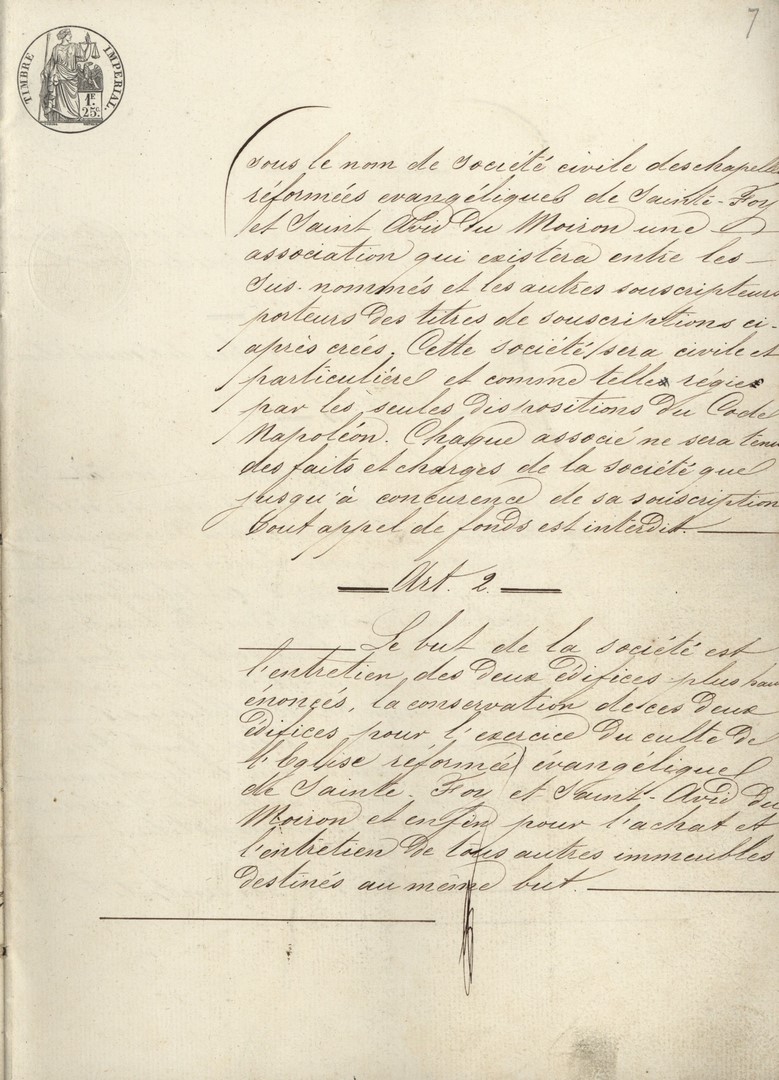 7
TIMBRE IMPERIAL.
1F.
25c.
sous le nom de Société civile des chapelles
réformées evangéliques de Sainte-Foy
et Saint Avid du Moiron une
association qui existera entre les
sus-nommés et les autres souscripteurs
porteurs des titres de souscriptions ci-
après créés. Cette société sera civile et
particulière et comme telle régie
par les seules dispositions du Code
Napoléon. Chaque associé ne sera tenu
des faits et charges de la société que
jusqu'à concurence de sa souscription
Tout appel de fonds est interdit.
Art. 2.
Le but de la société est
l'entretien des deux édifices plus haut
énoncés, la conservation de ces deux
édifices pour l'exercice du culte de
l'Eglise réformée évangélique
de Sainte-Foy et Saint-Avid du
Moiron et enfin pour l'achat et
l'entretien de tous autres immeubles
destinés au même but.